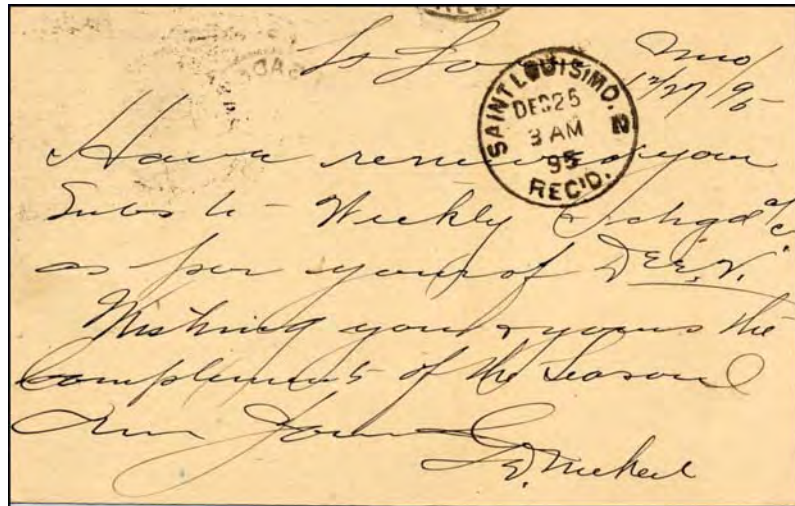 REC'D.
St Lo Mo
12/27/95
SAINT LOUIS, MO. 2
DEC 25
3 AM
95
REC'D.
Have renewed your
Subs to - Weekly & chgd a/c
as per yours of
Wishing you & yours the
Compliments of the Season
I am Yours